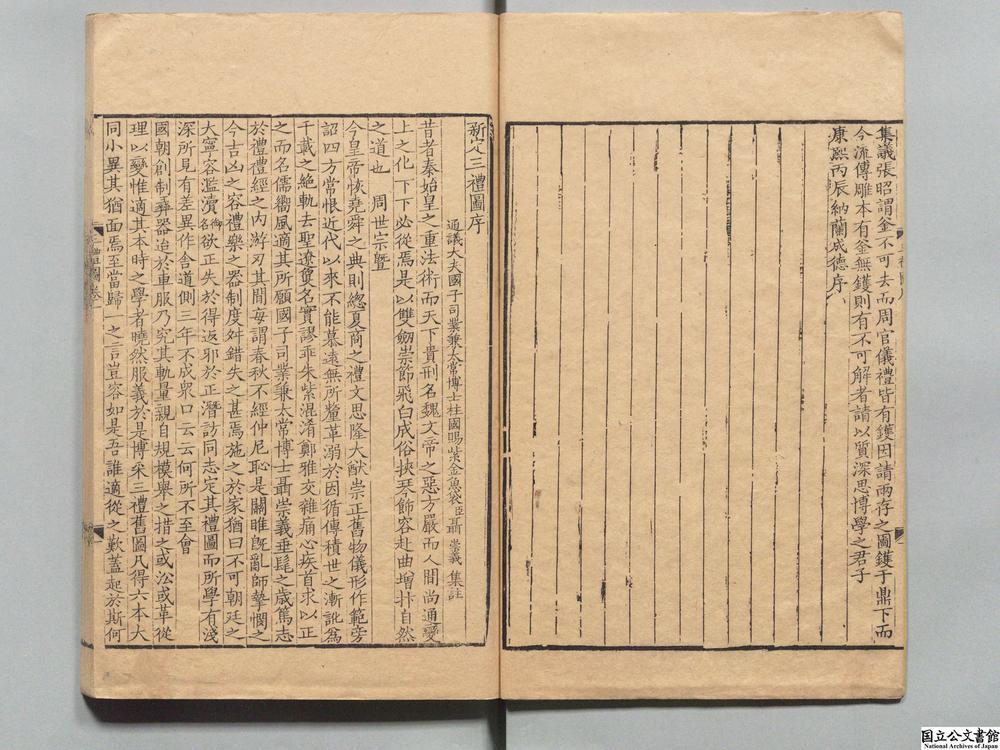 集議張昭謂釜不可去而周官儀禮皆有鑊因請兩存之圖鑊于鼎下而
今流傳雕本有釜無鑊則有不可解者請以質深思博學之君子
康熙丙辰納蘭成德序
新定三禮圖序
通議大夫國子司業兼太常博士柱國賜紫金魚袋臣聶崇義集註
昔者秦始皇之重法術而天下貴刑名魏文帝之惡方嚴而人間尚通變
上之化下下必從焉是以雙劒崇節飛白成俗挾琴飾容赴曲增抃自然
之道也 周世宗暨
今皇帝恢堯舜之典則總夏商之禮文思隆大猷崇正舊物儀形作範旁
詔四方常恨近代以來不能慕遠無所釐革溺於因循傳積世之漸訛爲
千載之絶軌去聖遼敻名實謬乖朱紫混淆鄭雅交雜痛心疾首求以正
之而名儒嚮風適其所願國子司業兼太常博士聶崇義垂髦之歲篤志
於禮禮經之内游刃其間每謂春秋不經仲尼恥是關雎既亂師摯憫之
今吉凶之容禮樂之器制度舛錯失之甚焉施之於家猶曰不可朝廷之
大寧容濫瀆欲正失於得返邪於正潛訪同志定其禮圖而所學有淺
深所見有差異作舍道側三年不成衆口云云何所不至會
國朝創制彝器迨於車服乃究其軌量親自規模舉之措之或沿或革從
理以變惟適其本時之學者曉然服義於是博采三禮舊圖凡得六本大
同小異其猶面焉至當歸一之言豈容如是吾誰適從之歎蓋起於斯何
三禮圖卷一
国立公文書館
National Archives of Japan